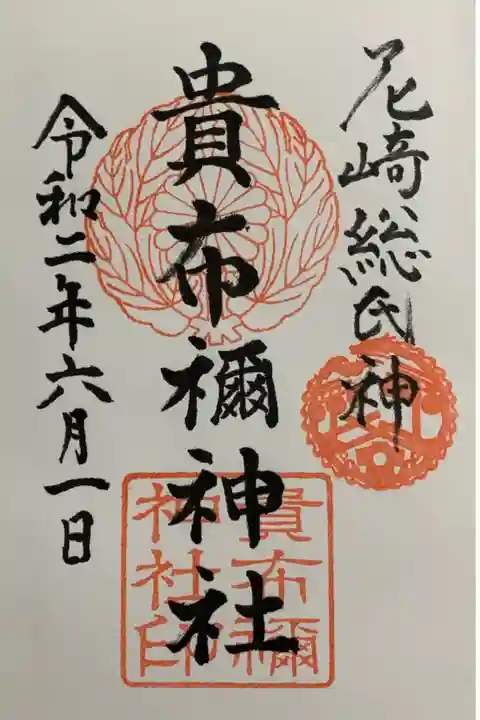 尼崎総氏神
貴布禰神社
貴布禰
神社印
令和二年六月一日